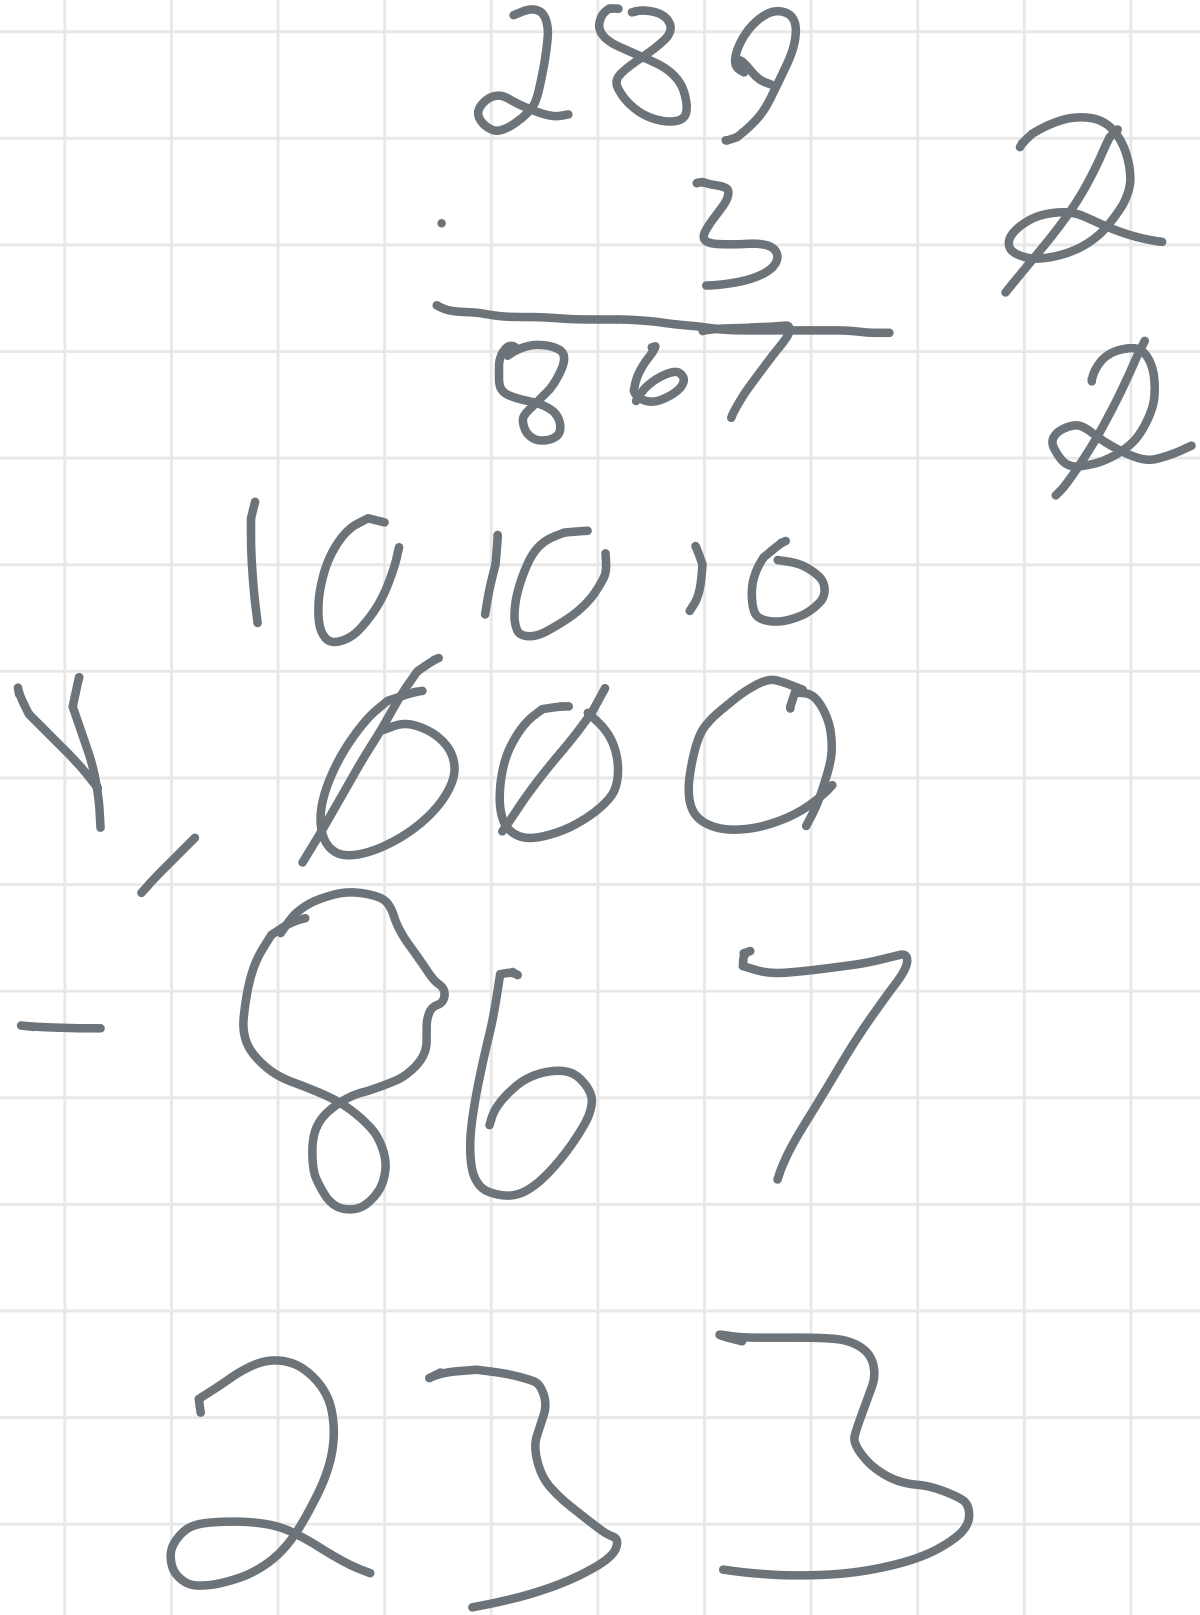 289
2
. 3
2
867
10 10 10
Y 000
- 867
233